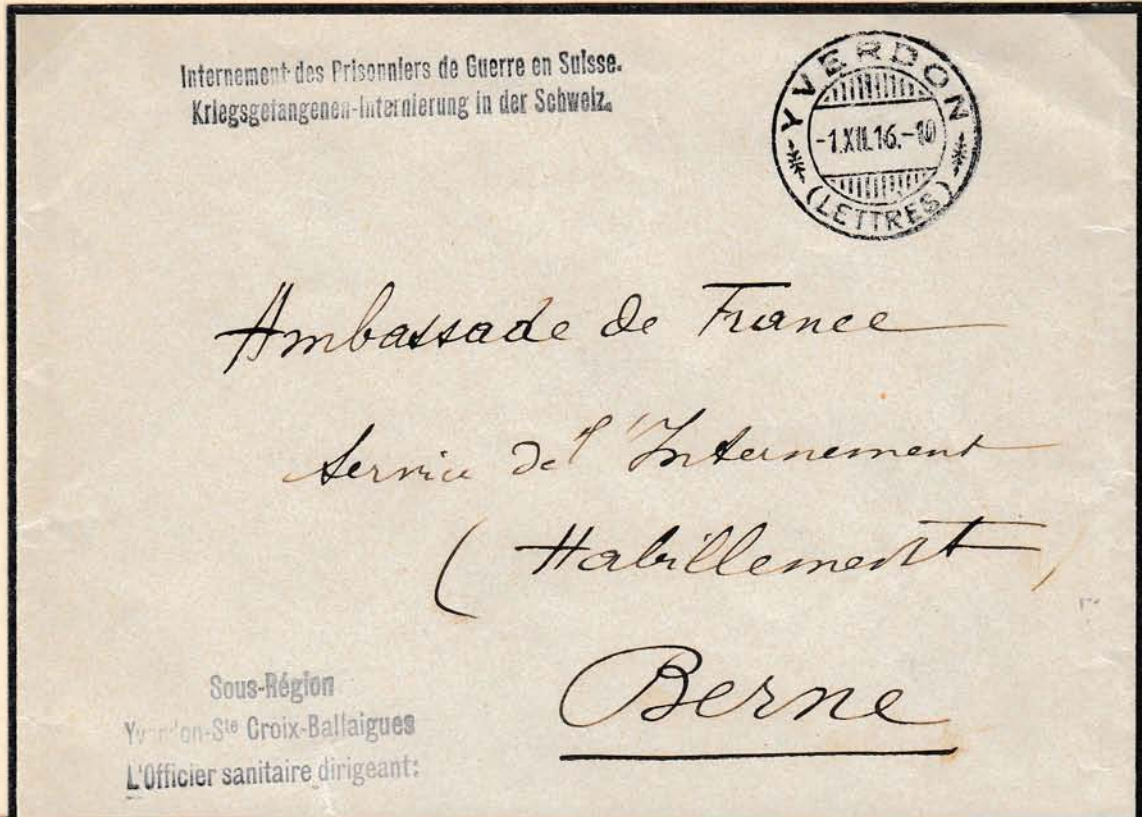 Internement des Prisonniers de Guerre en Suisse.
Kriegsgefangenen-Internierung in der Schweiz.
YVERDON
-1.XII.16.-10
(LETTRES)
Ambassade de France
Service de l'Internement
(Habillement)
Berne
Sous-Région
Yverdon-Ste Croix-Ballaigues
L'Officier sanitaire dirigeant: